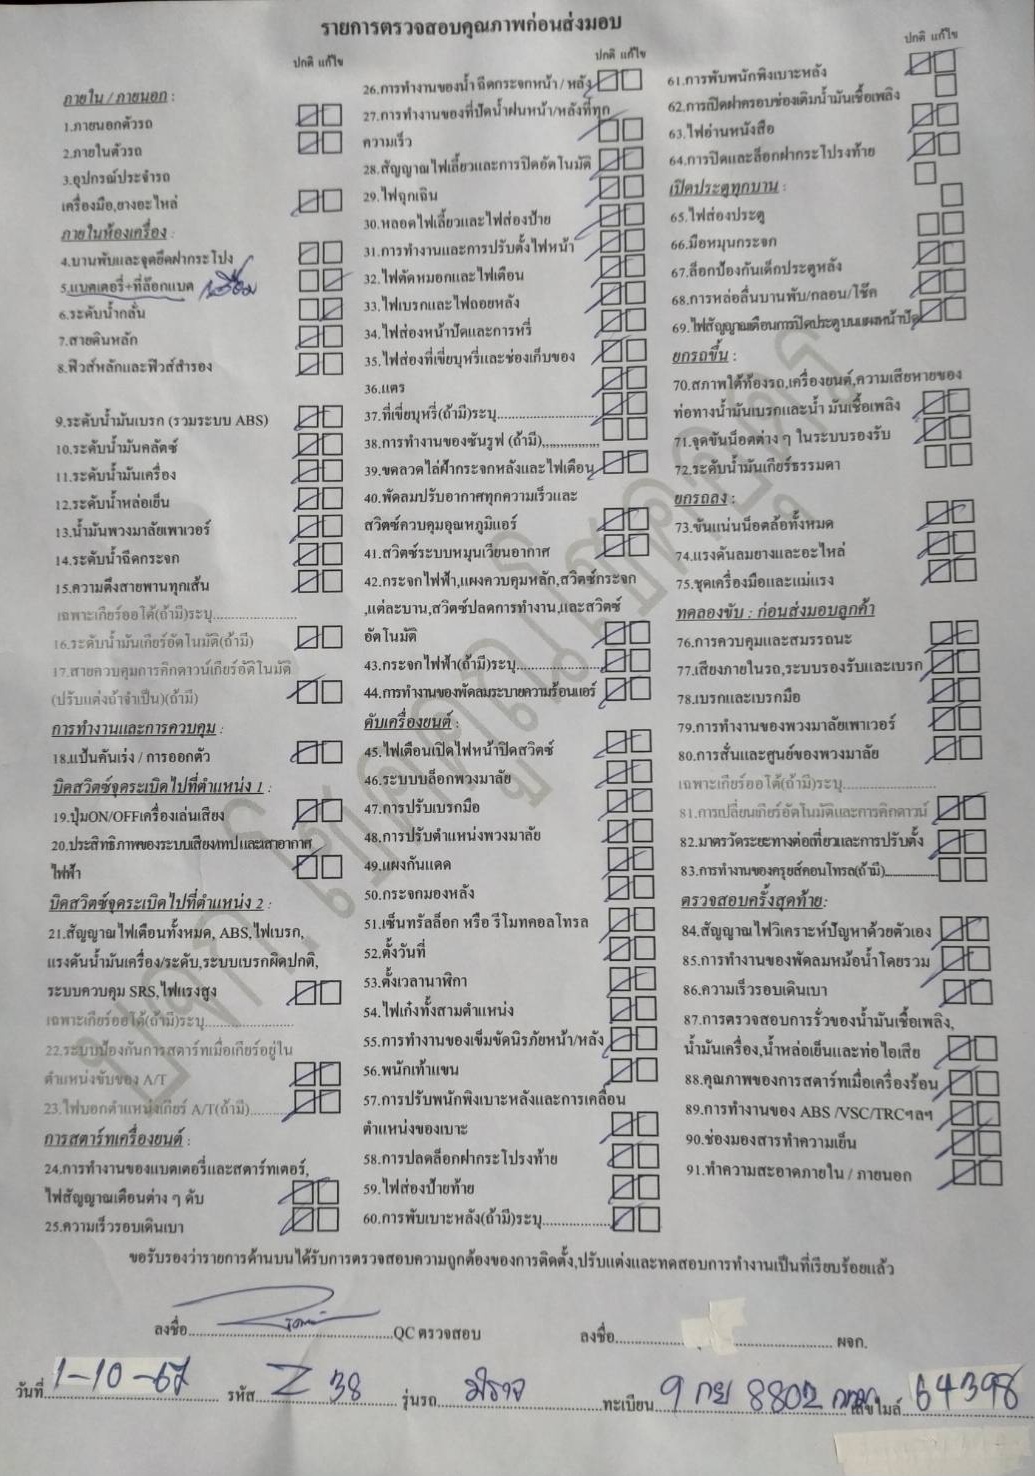 รายการตรวจสอบคุณภาพก่อนส่งมอบ
ปกติ แก้ไข
ภายใน / ภายนอก :
1.ภายนอกตัวรถ
2.ภายในตัวรถ
3.อุปกรณ์ประจำรถ
เครื่องมือ,ยางอะไหล่
ภายในห้องเครื่อง :
4.บานพับและจุดยึดฝากระโปง
5.แบตเตอรี่+ที่ล๊อกแบต เสื่อม
6.ระดับน้ำกลั่น
7.สายดินหลัก
8.ฟิวส์หลักและฟิวส์สำรอง
9.ระดับน้ำมันเบรก (รวมระบบ ABS)
10.ระดับน้ำมันคลัตช์
11.ระดับน้ำมันเครื่อง
12.ระดับน้ำหล่อเย็น
13.น้ำมันพวงมาลัยเพาเวอร์
14.ระดับน้ำฉีดกระจก
15.ความตึงสายพานทุกเส้น
เฉพาะเกียร์ออโต้(ถ้ามี)ระบุ........................
16.ระดับน้ำมันเกียร์อัตโนมัติ(ถ้ามี)
17.สายควบคุมการคิกดาวน์เกียร์อัตโนมัติ
(ปรับแต่งถ้าจำเป็น)(ถ้ามี)
การทำงานและการควบคุม :
18.แป้นคันเร่ง / การออกตัว
บิดสวิตซ์จุดระเบิดไปที่ตำแหน่ง 1 :
19.ปุ่มON/OFFเครื่องเล่นเสียง
20.ประสิทธิภาพของระบบเสียงเทปและเสาอากาศ
ไฟฟ้า
บิดสวิตซ์จุดระเบิดไปที่ตำแหน่ง 2 :
21.สัญญาณไฟเตือนทั้งหมด, ABS,ไฟเบรก,
แรงดันน้ำมันเครื่อง/ระดับ,ระบบเบรกผิดปกติ,
ระบบควบคุม SRS,ไฟแรงสูง
เฉพาะเกียร์ออโต้(ถ้ามี)ระบุ........................
22.ระบบป้องกันการสตาร์ทเมื่อเกียร์อยู่ใน
ตำแหน่งขับของ A/T
23.ไฟบอกตำแหน่งเกียร์ A/T(ถ้ามี)..........
การสตาร์ทเครื่องยนต์ :
24.การทำงานของแบตเตอรี่และสตาร์ทเตอร์,
ไฟสัญญาณเตือนต่าง ๆ ดับ
25.ความเร็วรอบเดินเบา
ปกติ แก้ไข
26.การทำงานของน้ำ ฉีดกระจกหน้า / หลัง
27.การทำงานของที่ปัดน้ำฝนหน้า/หลังที่ทุก
ความเร็ว
28.สัญญาณไฟเลี้ยวและการปิดอัตโนมัติ
29.ไฟฉุกเฉิน
30.หลอดไฟเลี้ยวและไฟส่องป้าย
31.การทำงานและการปรับตั้งไฟหน้า
32.ไฟตัดหมอกและไฟเตือน
33.ไฟเบรกและไฟถอยหลัง
34.ไฟส่องหน้าปัดและการหรี่
35.ไฟส่องที่เขี่ยบุหรี่และช่องเก็บของ
36.แตร
37.ที่เขี่ยบุหรี่(ถ้ามี)ระบุ........................
38.การทำงานของซันรูฟ (ถ้ามี)................
39.ขดลวดไล่ฝ้ากระจกหลังและไฟเตือน
40.พัดลมปรับอากาศทุกความเร็วและ
สวิตซ์ควบคุมอุณหภูมิแอร์
41.สวิตซ์ระบบหมุนเวียนอากาศ
42.กระจกไฟฟ้า,แผงควบคุมหลัก,สวิตซ์กระจก
,แต่ละบาน,สวิตซ์ปลดการทำงาน,และสวิตซ์
อัตโนมัติ
43.กระจกไฟฟ้า(ถ้ามี)ระบุ....................
44.การทำงานของพัดลมระบายความร้อนแอร์
ดับเครื่องยนต์ :
45.ไฟเตือนเปิดไฟหน้าปิดสวิตซ์
46.ระบบบล็อกพวงมาลัย
47.การปรับเบรกมือ
48.การปรับตำแหน่งพวงมาลัย
49.แผงกันแดด
50.กระจกมองหลัง
51.เซ็นทรัลล็อก หรือ รีโมทคอลโทรล
52.ตั้งวันที่
53.ตั้งเวลานาฬิกา
54.ไฟเก๋งทั้งสามตำแหน่ง
55.การทำงานของเข็มขัดนิรภัยหน้า/หลัง
56.พนักเท้าแขน
57.การปรับพนักพิงเบาะหลังและการเคลื่อน
ตำแหน่งของเบาะ
58.การปลดล็อกฝากระโปรงท้าย
59.ไฟส่องป้ายท้าย
60.การพับเบาะหลัง(ถ้ามี)ระบุ................
ปกติ แก้ไข
61.การพับพนักพิงเบาะหลัง
62.การเปิดฝาครอบช่องเติมน้ำมันเชื้อเพลิง
63.ไฟอ่านหนังสือ
64.การปิดและล็อกฝากระโปรงท้าย
เปิดประตูทุกบาน :
65.ไฟส่องประตู
66.มือหมุนกระจก
67.ล็อกป้องกันเด็กประตูหลัง
68.การหล่อลื่นบานพับ/กลอน/โช๊ค
69.ไฟสัญญาณเตือนการปิดประตูบนแผงหน้าปัด
ยกรถขึ้น :
70.สภาพใต้ท้องรถ,เครื่องยนต์,ความเสียหายของ
ท่อทางน้ำมันเบรกและน้ำ มันเชื้อเพลิง
71.จุดขันน็อตต่าง ๆ ในระบบรองรับ
72.ระดับน้ำมันเกียร์ธรรมดา
ยกรถลง :
73.ขันแน่นน็อตล้อทั้งหมด
74.แรงดันลมยางและอะไหล่
75.ชุดเครื่องมือและแม่แรง
ทดลองขับ : ก่อนส่งมอบลูกค้า
76.การควบคุมและสมรรถนะ
77.เสียงภายในรถ,ระบบรองรับและเบรก
78.เบรกและเบรกมือ
79.การทำงานของพวงมาลัยเพาเวอร์
80.การสั่นและศูนย์ของพวงมาลัย
เฉพาะเกียร์ออโต้(ถ้ามี)ระบุ........................
81.การเปลี่ยนเกียร์อัตโนมัติและการคิกดาวน์
82.มาตรวัดระยะทางต่อเที่ยวและการปรับตั้ง
83.การทำงานของครุยส์คอนโทรล(ถ้ามี)..............
ตรวจสอบครั้งสุดท้าย:
84.สัญญาณไฟวิเคราะห์ปัญหาด้วยตัวเอง
85.การทำงานของพัดลมหม้อน้ำโดยรวม
86.ความเร็วรอบเดินเบา
87.การตรวจสอบการรั่วของน้ำมันเชื้อเพลิง,
น้ำมันเครื่อง,น้ำหล่อเย็นและท่อไอเสีย
88.คุณภาพของการสตาร์ทเมื่อเครื่องร้อน
89.การทำงานของ ABS /VSC/TRCฯลฯ
90.ช่องมองสารทำความเย็น
91.ทำความสะอาดภายใน / ภายนอก
ขอรับรองว่ารายการด้านบนได้รับการตรวจสอบความถูกต้องของการติดตั้ง,ปรับแต่งและทดสอบการทำงานเป็นที่เรียบร้อยแล้ว
ลงชื่อ........................QC ตรวจสอบ ลงชื่อ........................ ผจก.
วันที่ 1-10-67 รหัส Z 38 รุ่นรถ มิราจ ทะเบียน 9 กย 8802 กทม เลขไมล์ 64398